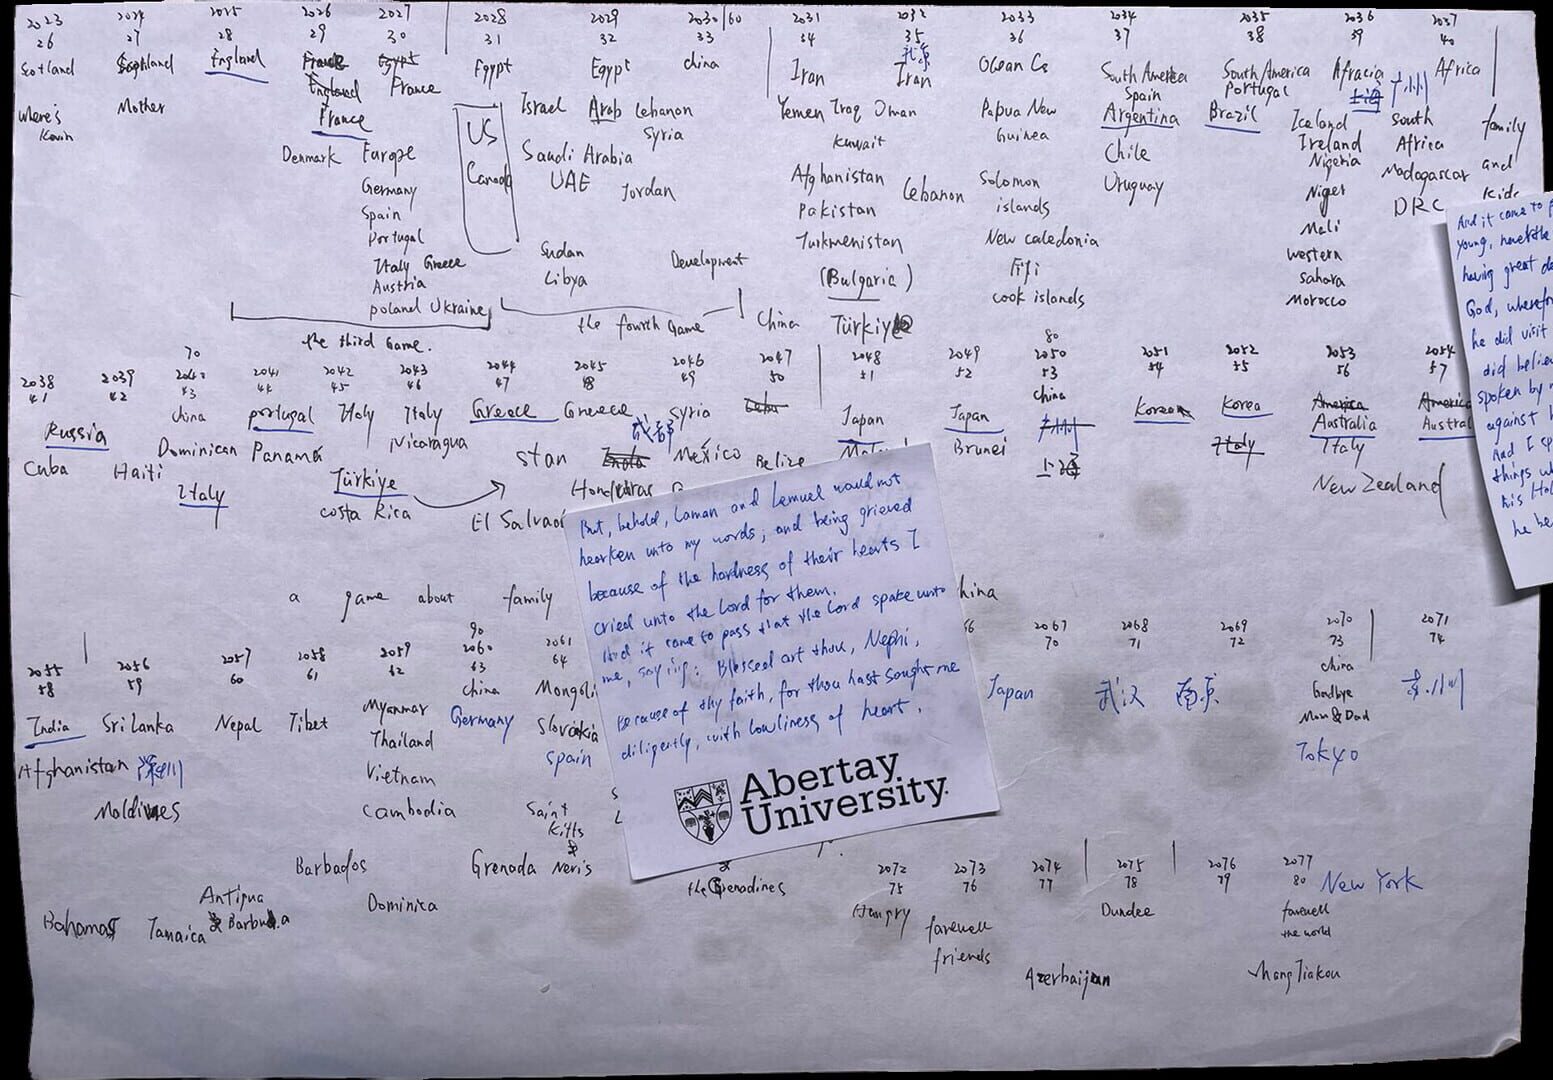 2023 2024 2025 2026 2027 2028 2029 2030/60 2031 2032 2033 2034 2035 2036 2037
26 27 28 29 30 31 32 33 34 35 36 37 38 39 40
Scotland Scotland England France Egypt Egypt Egypt china Iran Iran Ocean Cs South America South America Africa Africa
England France Spain portugal
where's Kevin
Mother
France
Argentina Brazil
US
Canada
Israel Arab Lebanon
Syria
Saudi Arabia
UAE Jordan
Sudan
Libya
Development
Denmark Europe
Germany
Spain
Portugal
Italy Greece
Austria
poland Ukraine
the third Game.
the fourth Game
China
Yemen Iraq Oman
kuwait
Afghanistan Lebanon
Pakistan
Turkmenistan
(Bulgaria)
Türkiye
Papua New
Guinea
Solomon
islands
New Caledonia
Fiji
cook islands
Chile
Uruguay
Iceland
Ireland
Nigeria
Niger
Mali
western
Sahara
Morocco
广州
South
Africa
Madagascar
DRC
family
and
kids
70 80
2038 2039 2040 2041 2042 2043 2044 2045 2046 2047 2048 2049 2050 2051 2052 2053 2054
41 42 43 44 45 46 47 48 49 50 51 52 53 54 55 56 57
Russia china portugal Italy Italy Greece Greece Syria Cuba Japan Japan china Korea Korea America America
成都 广州 Australia
Cuba Haiti Dominican Panama Nicaragua stan India México Belize Brunei 上海 Italy Italy
Italy Türkiye Honduras New Zealand
costa Rica El Salvador
a game about family
90
2055 2056 2057 2058 2059 2060 2061 2067 2068 2069 2070 2071
58 59 60 61 62 63 64 70 71 72 73 74
India Sri Lanka Nepal Tibet Myanmar china Japan 武汉 南京 china
Germany Goodbye
Mom & Dad
Afghanistan 深圳 Thailand Slovakia Tokyo
Vietnam Spain
Moldives Cambodia Saint
Kitts
&
Barbados Grenada Neris
Antigua Dominica
& Barbuda
Bahamas Jamaica
the Grenadines
2072 2073 2074 2075 2076 2077
75 76 77 78 79 80 New York
Hungry farewell Dundee farewell
friends the world
Azerbaijan Zhang Jiakou
But, behold, Laman and Lemuel would not
hearken unto my words; and being grieved
because of the hardness of their hearts I
cried unto the Lord for them.
And it came to pass that the Lord spake unto
me, saying: Blessed art thou, Nephi,
because of thy faith, for thou hast sought me
diligently, with lowliness of heart.
Abertay
University
And it came to
young,
having great
God, wherefore
he did visit
did believe
spoken by
against
And I
things
his
he